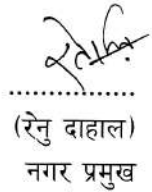 ....................
(रेनु दाहाल)
नगर प्रमुख